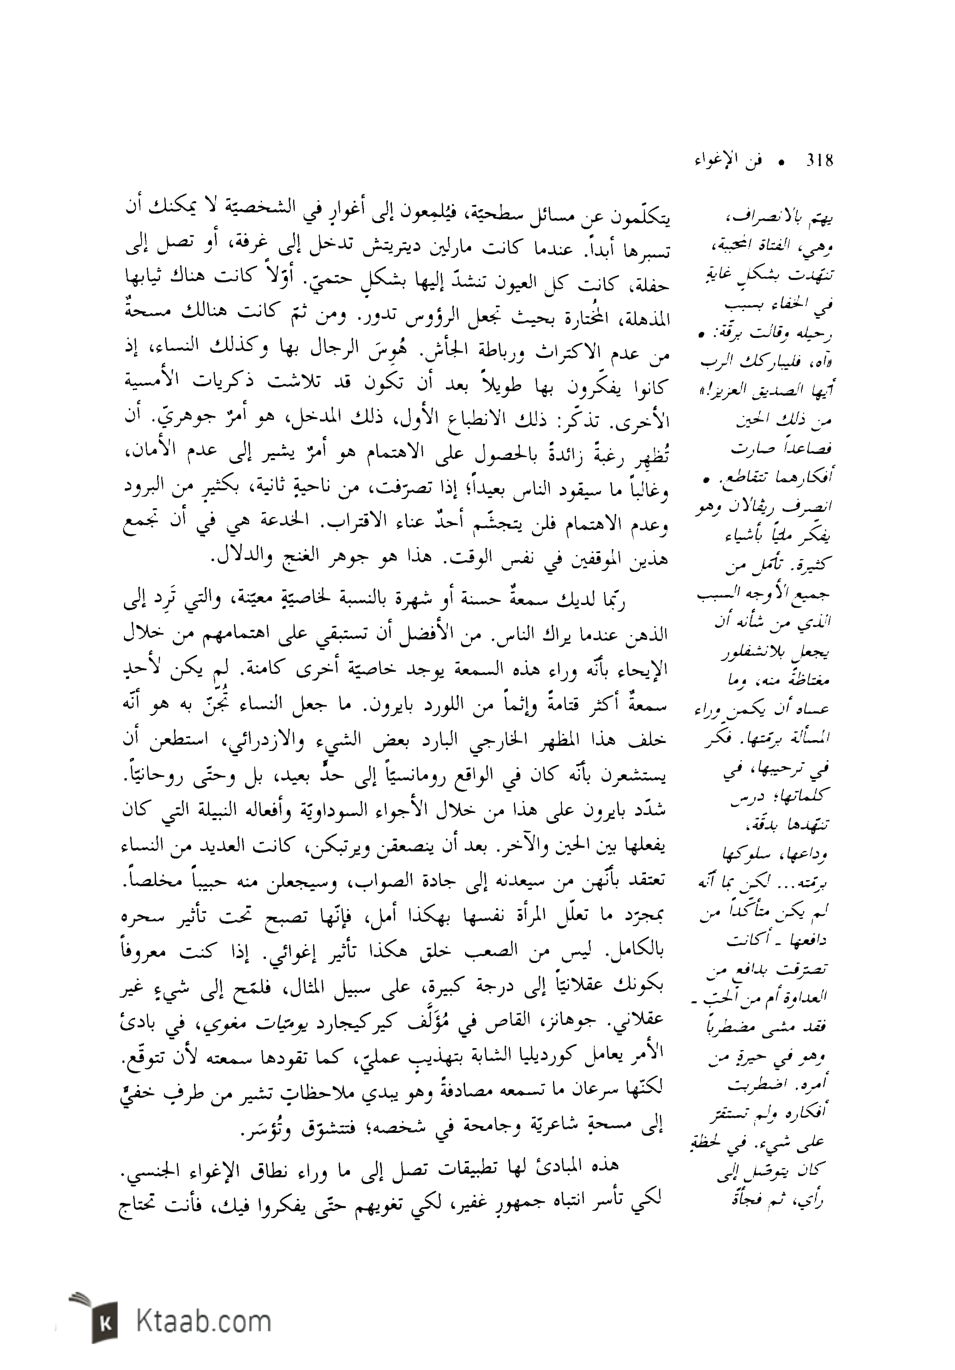 318 • فن الإغواء
يتكلّمون عن مسائل سطحيّة، فيُلمِعون إلى أغوارٍ في الشخصيّة لا يمكنك أن
تسبرها أبداً. عندما كانت مارلين ديتريتش تدخل إلى غرفة، أو تصل إلى
حفلة، كانت كل العيون تنشدّ إليها بشكلٍ حتميّ. أوّلاً كانت هناك ثيابها
المذهلة، المُختارة بحيث تجعل الرؤوس تدور. ومن ثمّ كانت هنالك مسحةٌ
من عدم الاكتراث ورباطة الجأش. هُوِسَ الرجال بها وكذلك النساء، إذ
كانوا يفكّرون بها طويلاً بعد أن تكون قد تلاشت ذكريات الأمسية
الأخرى. تذكّر: ذلك الانطباع الأول، ذلك المدخل، هو أمرٌ جوهريّ. أن
تُظهِر رغبةً زائدةً بالحصول على الاهتمام هو أمرٌ يشير إلى عدم الأمان،
وغالباً ما سيقود الناس بعيداً؛ إذا تصرّفت، من ناحيةٍ ثانية، بكثيرٍ من البرود
وعدم الاهتمام فلن يتجشّم أحدٌ عناء الاقتراب. الخدعة هي في أن تجمع
هذين الموقفين في نفس الوقت. هذا هو جوهر الغنج والدلال.
ربّما لديك سمعةٌ حسنة أو شهرة بالنسبة لخاصيّةٍ معيّنة، والتي تَرِد إلى
الذهن عندما يراك الناس. من الأفضل أن تستبقي على اهتمامهم من خلال
الإيحاء بأنّه وراء هذه السمعة يوجد خاصيّة أخرى كامنة. لم يكن لأحدٍ
سمعةٌ أكثر قتامةً وإثماً من اللورد بايرون. ما جعل النساء تُجَنّ به هو أنّه
خلف هذا المظهر الخارجي البارد بعض الشيء والازدرائي، استطعن أن
يستشعرن بأنّه كان في الواقع رومانسيّاً إلى حدٍّ بعيد، بل وحتّى روحانيّاً.
شدّد بايرون على هذا من خلال الأجواء السوداويّة وأفعاله النبيلة التي كان
يفعلها بين الحين والآخر. بعد أن ينصعقن ويرتبكن، كانت العديد من النساء
تعتقد بأنّهن من سيعدنه إلى جادة الصواب، وسيجعلن منه حبيباً مخلصاً.
بمجرّد ما تعلّل المرأة نفسها بهكذا أمل، فإنّها تصبح تحت تأثير سحره
بالكامل. ليس من الصعب خلق هكذا تأثير إغوائي. إذا كنت معروفاً
بكونك عقلانيّاً إلى درجة كبيرة، على سبيل المثال، فلمّح إلى شيءٍ غير
عقلاني. جوهانز، القاص في مُؤَلَّف كيركيجارد يوميّات مغوي، في بادئ
الأمر يعامل كورديليا الشابة بتهذيبٍ عمليّ، كما تقودها سمعته لأن تتوقّع.
لكنّها سرعان ما تسمعه مصادفةً وهو يبدي ملاحظاتٍ تشير من طرفٍ خفيٍّ
إلى مسحةٍ شاعريّة وجامحة في شخصه؛ فتتشوّق وتُؤسَر.
هذه المبادئ لها تطبيقات تصل إلى ما وراء نطاق الإغواء الجنسي.
لكي تأسر انتباه جمهورٍ غفير، لكي تغويهم حتّى يفكروا فيك، فأنت تحتاج
يهتم بالانصراف،
وهي، الفتاة المحبّبة،
تنهّدت بشكلٍ غايةٍ
في الخفاء بسبب
رحيله وقالت برقّة: •
«آه، فليباركك الرب
أيّها الصديق العزيز!»
من ذلك الحين
فصاعداً صارت
أفكارهما تتقاطع. •
انصرف ريڤالان وهو
يفكّر مليّاً بأشياء
كثيرة. تأمّل من
جميع الأوجه السبب
الذي من شأنه أن
يجعل بلانشفلور
مغتاظةً منه، وما
عساه أن يكمن وراء
المسألة برمّتها. فكّر
في ترحيبها، في
كلماتها؛ درس
تنهّدها بدقّة،
وداعها، سلوكها
برمّته... لكن بما أنّه
لم يكن متأكّداً من
دافعها ـ أكانت
تصرّفت بدافعٍ من
العداوة أم من الحبّ ـ
فقد مشى مضطرباً
وهو في حيرةٍ من
أمره. اضطربت
أفكاره ولم تستقرّ
على شيء. في لحظةٍ
كان يتوصّل إلى
رأي، ثم فجأةً
Ktaab.com